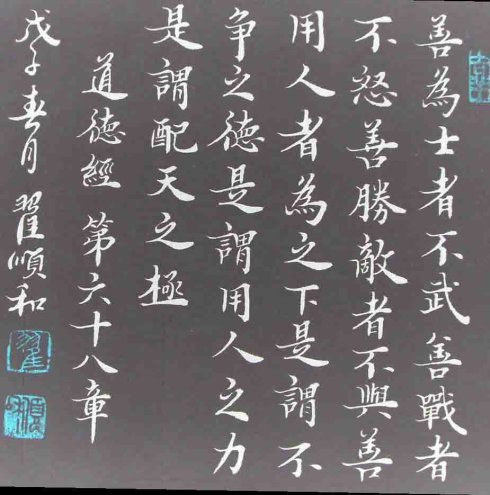 善為士者不武善戰者
不怒善勝敵者不與善
用人者為之下是謂不
争之德是謂用人之力
是謂配天之極
道德經 第六十八章
戊子春月 翟順和